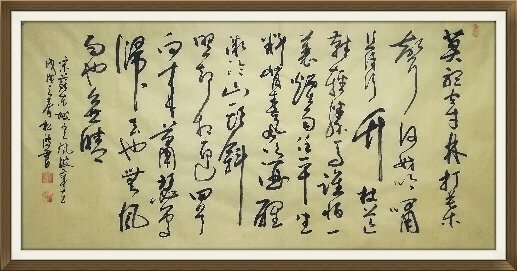 莫聽穿林打葉
聲何妨吟嘯
且徐行竹杖芒
鞋輕勝馬誰怕一
蓑煙雨任平生
料峭春風吹酒醒
微冷山頭斜
照却相迎回首
向來蕭瑟處
歸去也無風
雨也無晴
宋蘇東坡定風波
戊戌之春月